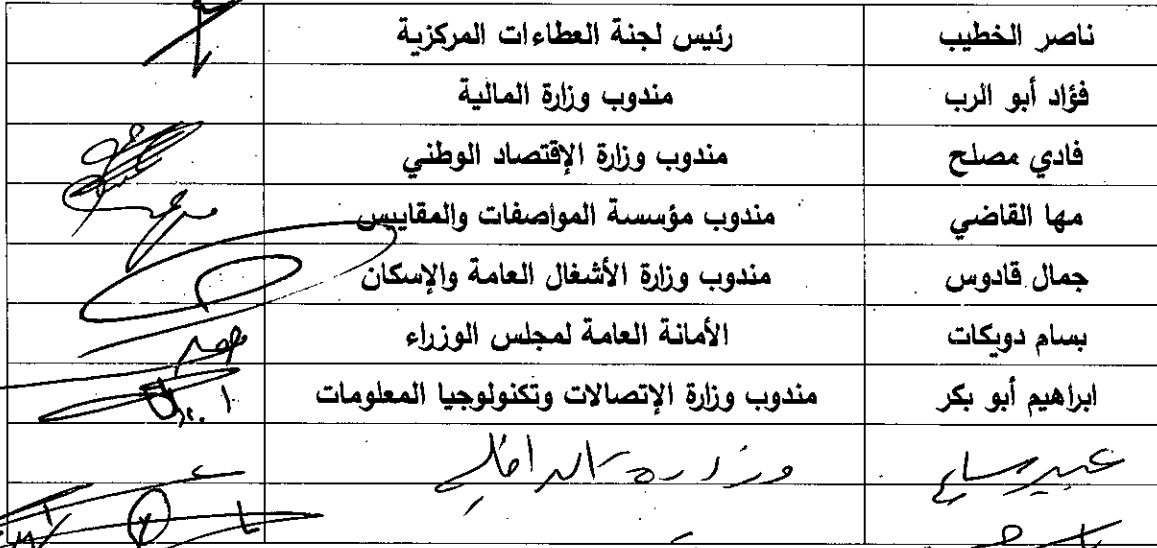 ناصر الخطيب رئيس لجنة العطاءات المركزية
فؤاد أبو الرب مندوب وزارة المالية
فادي مصلح مندوب وزارة الإقتصاد الوطني
مها القاضي مندوب مؤسسة المواصفات والمقاييس
جمال قادوس مندوب وزارة الأشغال العامة والإسكان
بسام دويكات الأمانة العامة لمجلس الوزراء
ابراهيم أبو بكر مندوب وزارة الإتصالات وتكنولوجيا المعلومات
عبير وزارة الداخلية